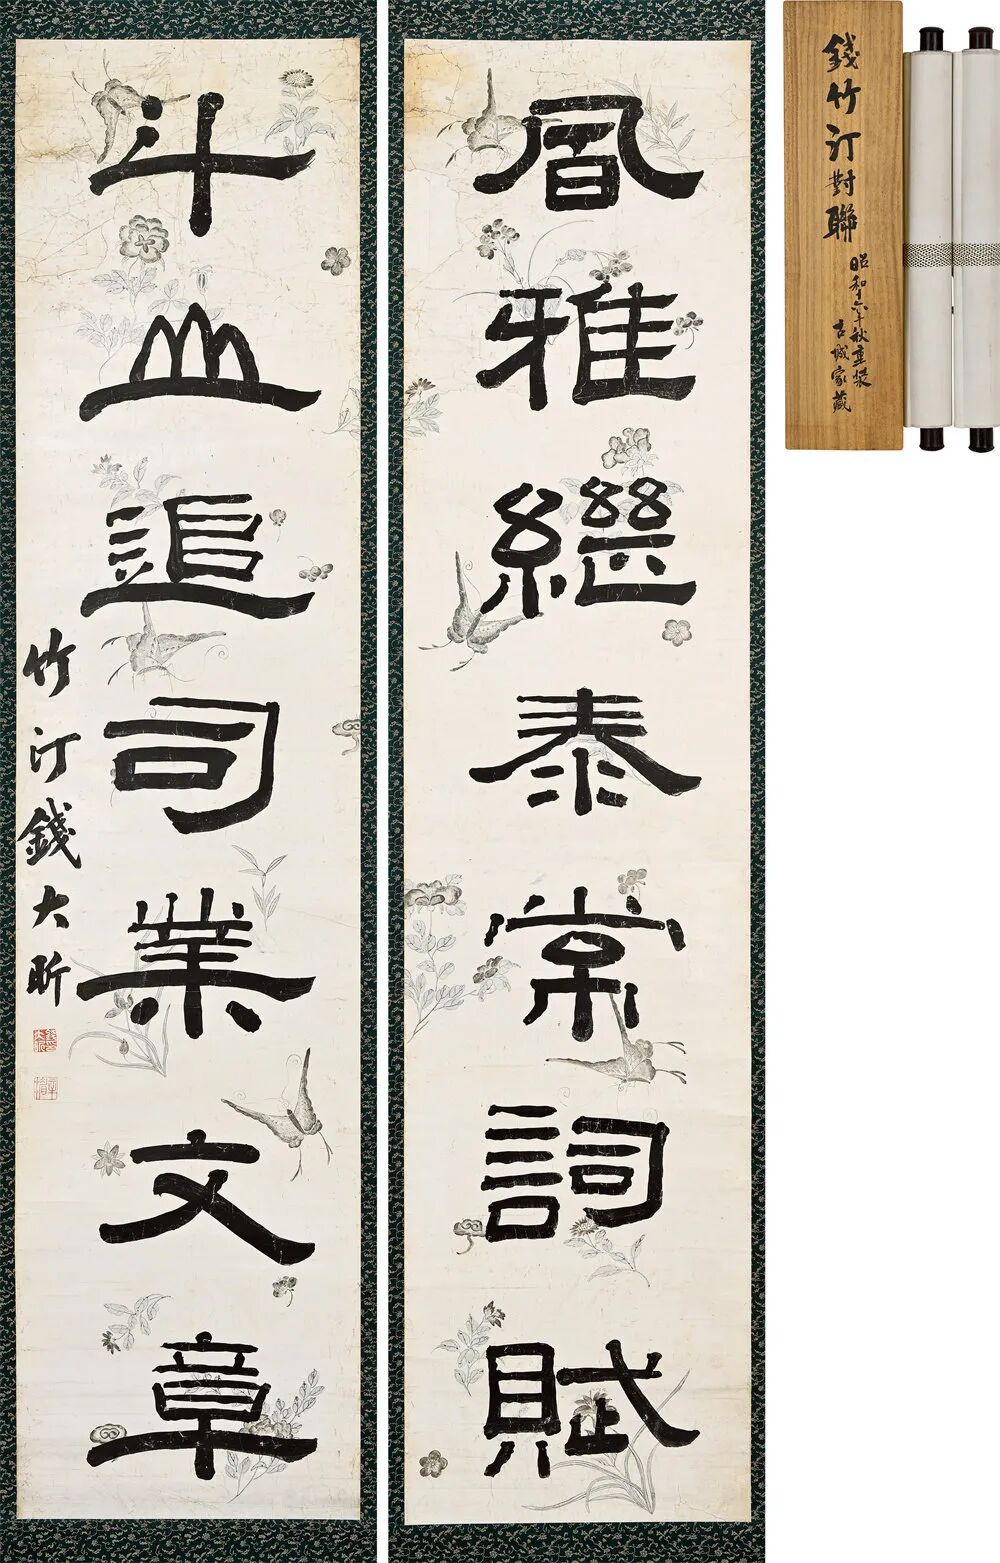 風雅繼泰常詞賦
斗山追司業文章
竹汀錢大昕
錢竹汀對聯
昭和六十秋重裝
古城家藏